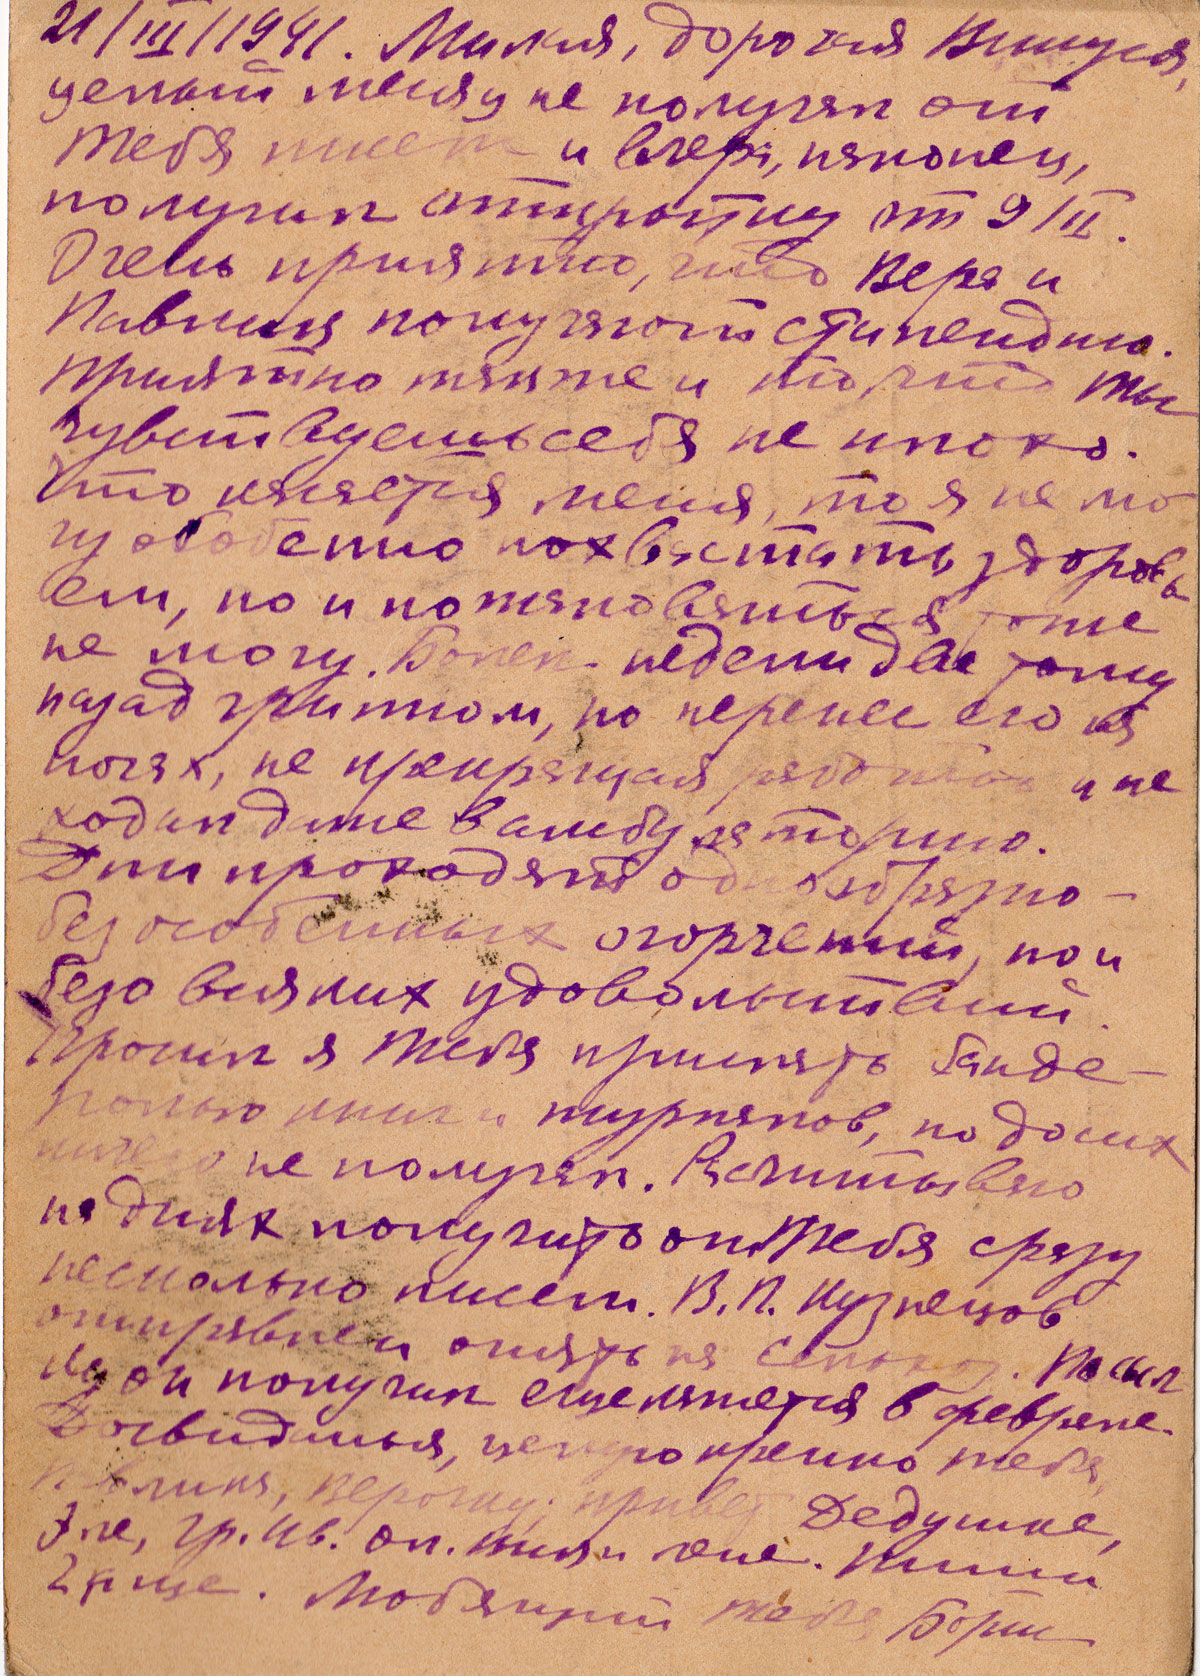 21/III/1941. Милая, дорогая Винуся,
целый месяц не получал от
тебя писем и вчера, наконец,
получил открытку от 9/II.
Очень приятно, что Вера и
Павлик получают стипендию.
Приятно также и то, что ты
чувствуешь себя не плохо.
Что касается меня, то я не мо
гу особенно похвастать здоровь
ем, но и пожаловаться тоже
не могу. Болел недели две тому
назад гриппом, но перенес его на
ногах, не прекращая работы и не
ходил даже в амбулаторию.
Дни проходят однообразно –
без особенных огорчений, но и
безо всяких удовольствий.
Просил я тебя прислать банде-
ролью книг и журналов, но до сих
ничего не получал. Рассчитываю
на днях получить от тебя сразу
несколько писем. В. П. Кузнецов
отправлен опять на сельхоз. Посыл
ку он получил еще кажется в феврале.
Досвиданья, целую крепко тебя,
Павлика, Верочку; привет Дедушке,
Эле, Гр. Ив. Ол. Пиши
чаще. Любящий тебя Борис